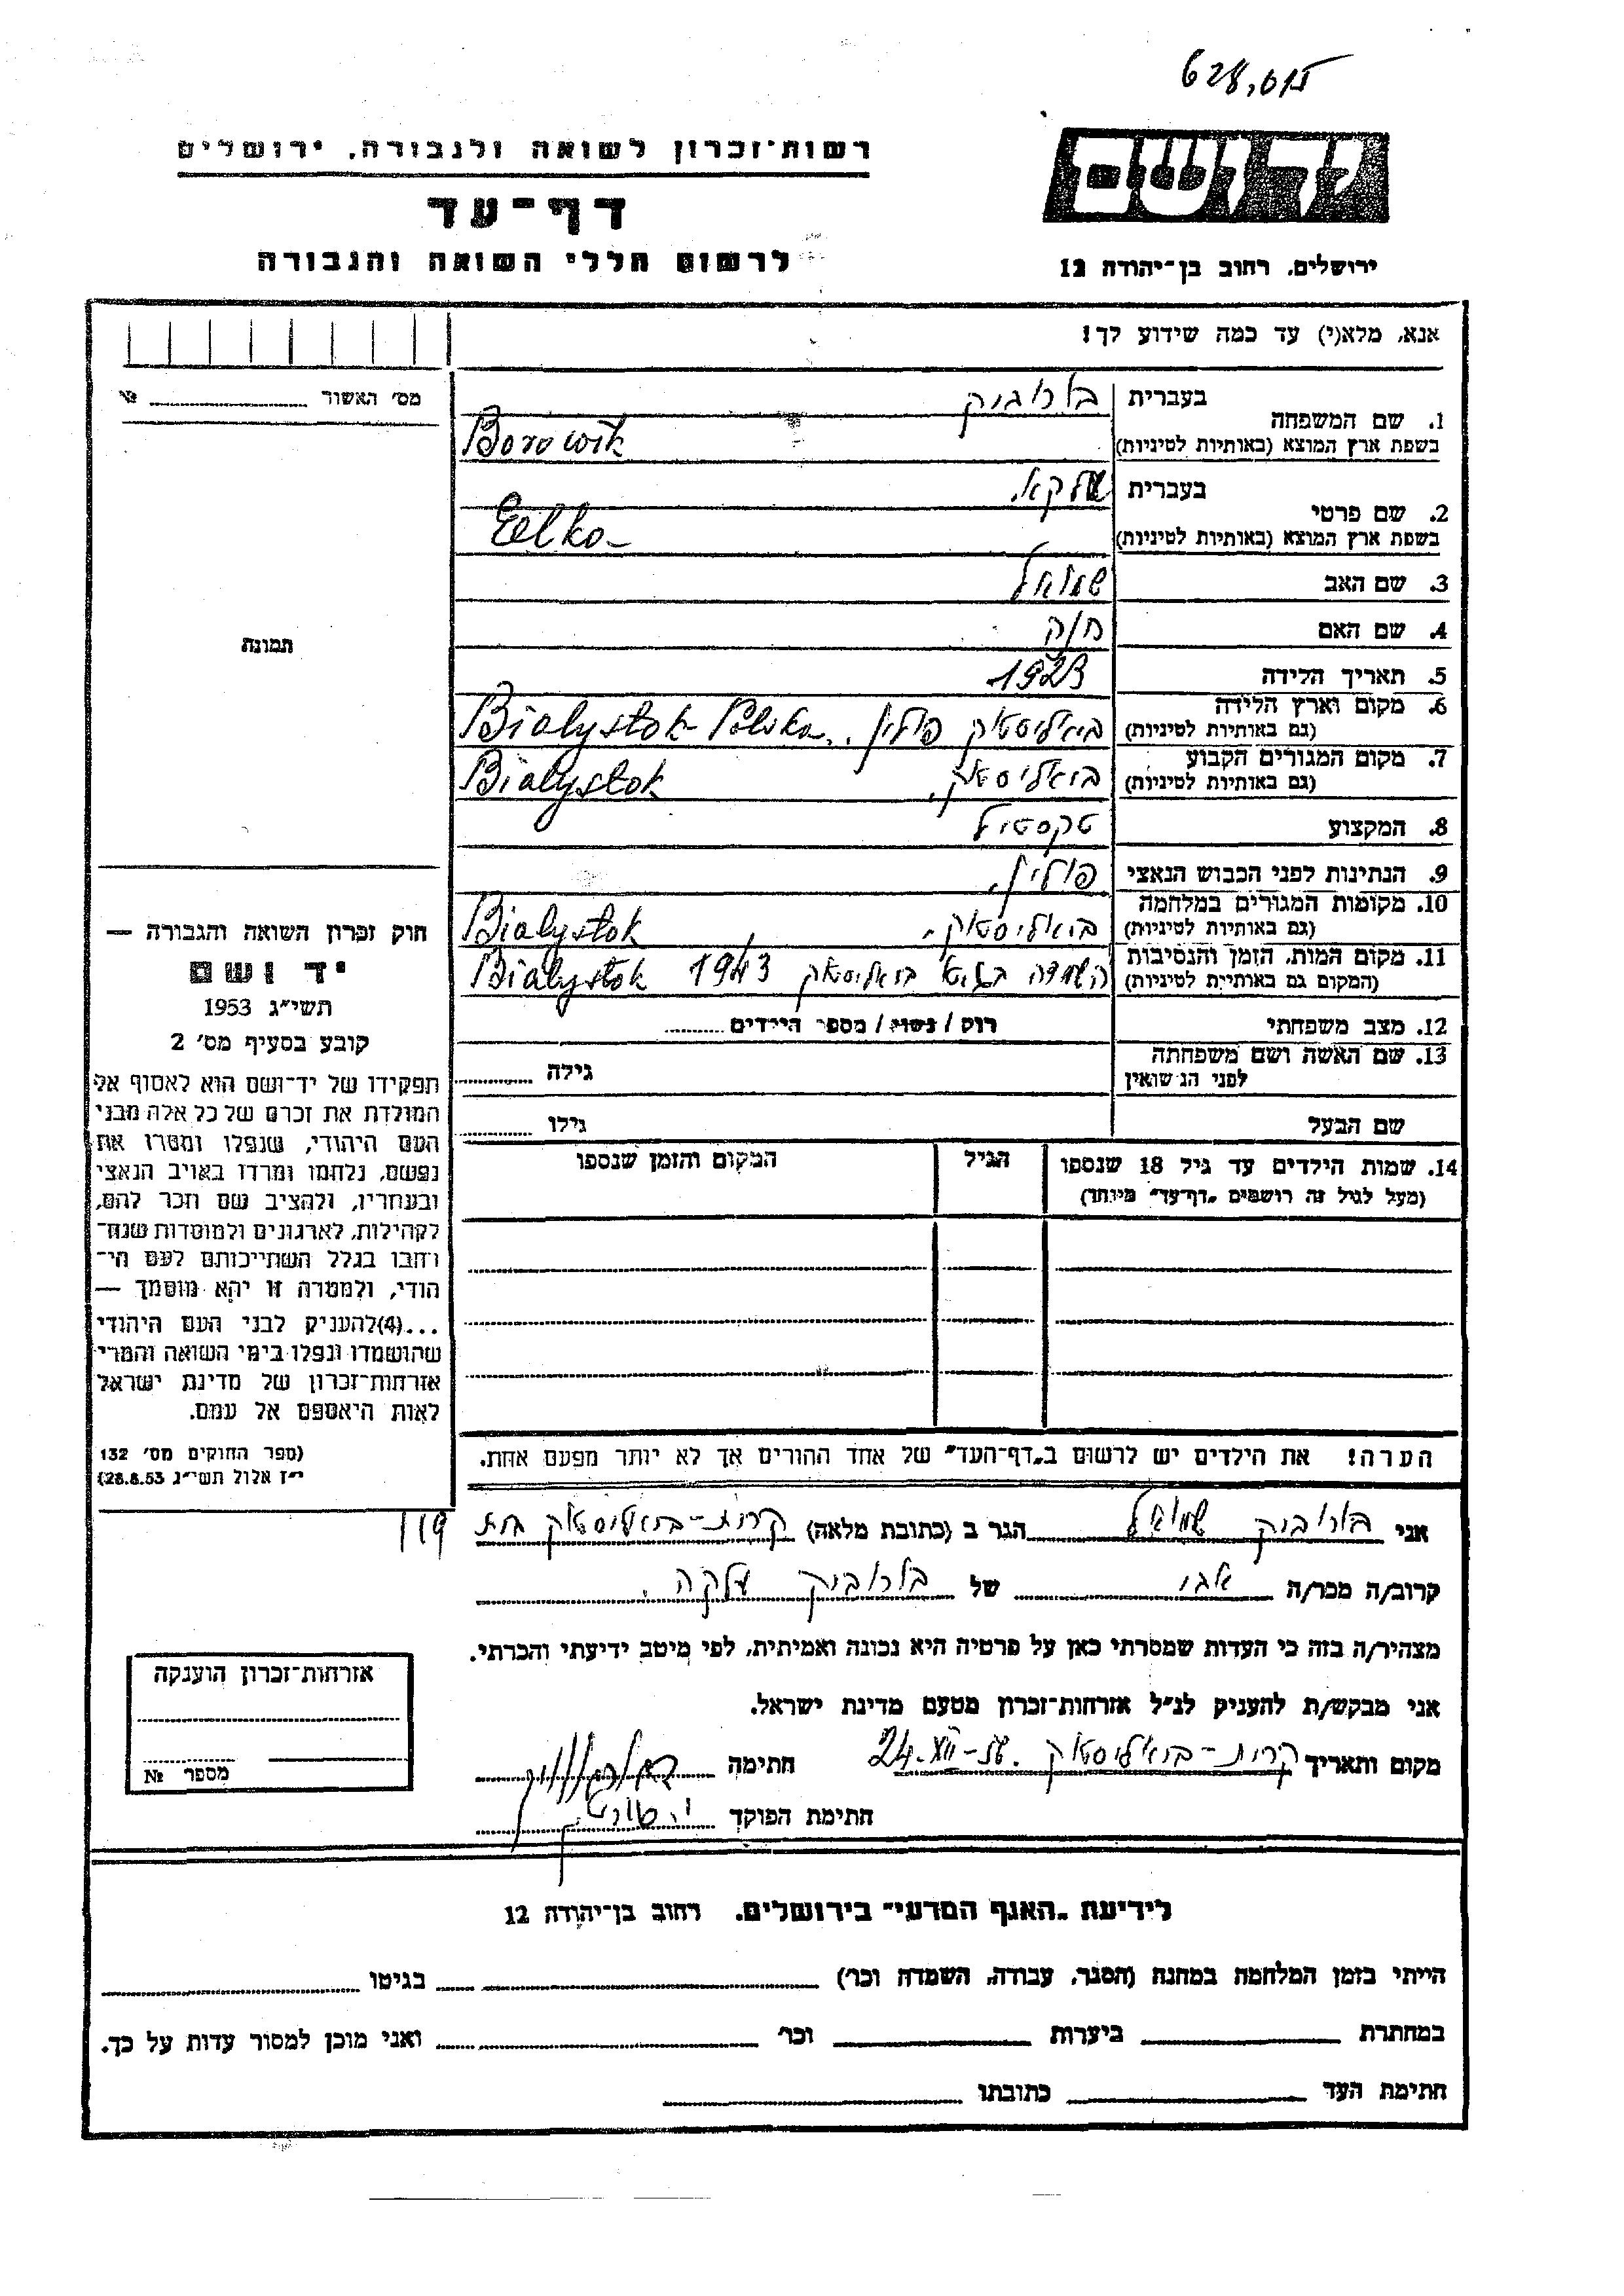 628,015
רשות-זכרון לשואה ולגבורה, ירושלים
דף-עד
לרשום חללי השואה והגבורה
יד ושם
ירושלים, רחוב בן-יהודה 12
אנא, מלא(י) עד כמה שידוע לך!
מס' האשור № 
תמונה
חוק זכרון השואה והגבורה —
יד ושם
תשי״ג 1953
קובע בסעיף מס' 2
תפקידו של יד-ושם הוא לאסוף אל
המולדת את זכרם של כל אלה מבני
העם היהודי, שנפלו ומסרו את
נפשם, נלחמו ומרדו באויב הנאצי
ובעוזריו, ולהציב שם וזכר להם,
לקהילות, לארגונים ולמוסדות שנח־
רבו בגלל השתייכותם לעם הי־
הודי, ולמטרה זו יהא מוסמך —
...(4)להעניק לבני העם היהודי
שהושמדו ונפלו בימי השואה והמרי
אזרחות-זכרון של מדינת ישראל
לאות היאספם אל עמם.
(ספר החוקים מס' 132
י״ז אלול תשי״ג 28.8.53)
1. שם המשפחה בעברית בורוביק
בשפת ארץ המוצא (באותיות לטיניות) Borowik
2. שם פרטי בעברית
בשפת ארץ המוצא (באותיות לטיניות) Eelka
3. שם האב שמואל
4. שם האם חיה
5. תאריך הלידה 1923
6. מקום וארץ הלידה (גם באותיות לטיניות) ביאליסטוק פולין. Bialystok Polska
7. מקום המגורים הקבוע (גם באותיות לטיניות) ביאליסטוק, Bialystok
8. המקצוע טקסטיל
9. הנתינות לפני הכבוש הנאצי פולין.
10. מקומות המגורים במלחמה (גם באותיות לטיניות) ביאליסטוק, Bialystok
11. מקום המות, הזמן והנסיבות (המקום גם באותיות לטיניות) השמדה בגיטו ביאליסטוק 1943 Bialystok
12. מצב משפחתי רווק / נשוי / מספר הילדים
13. שם האשה ושם משפחתה לפני הנישואין גילה
שם הבעל גילו
14. שמות הילדים עד גיל 18 שנספו הגיל המקום והזמן שנספו
(מעל לגיל זה רושמים „דף-עד״ מיוחד)
הערה! את הילדים יש לרשום ב„דף-העד״ של אחד ההורים אך לא יותר מפעם אחת.
אני בורוביק שמואל הגר ב (כתובת מלאה) קרית-ביאליסטוק בית 119
קרוב/ה מכר/ה אביו של בורוביק
מצהיר/ה בזה כי העדות שמסרתי כאן על פרטיה היא נכונה ואמיתית, לפי מיטב ידיעתי והכרתי.
אני מבקש/ת להעניק לנ״ל אזרחות-זכרון מטעם מדינת ישראל.
מקום ותאריך קרית-ביאליסטוק חתימה
חתימת הפוקד
אזרחות-זכרון הוענקה
מספר №
לידיעת „האגף המדעי״ בירושלים. רחוב בן-יהודה 12
הייתי בזמן המלחמה במחנה (הסגר, עבודה, השמדה וכו') בגיטו
במחתרת ביערות וכו' ואני מוכן למסור עדות על כך.
חתימת העד כתובתו